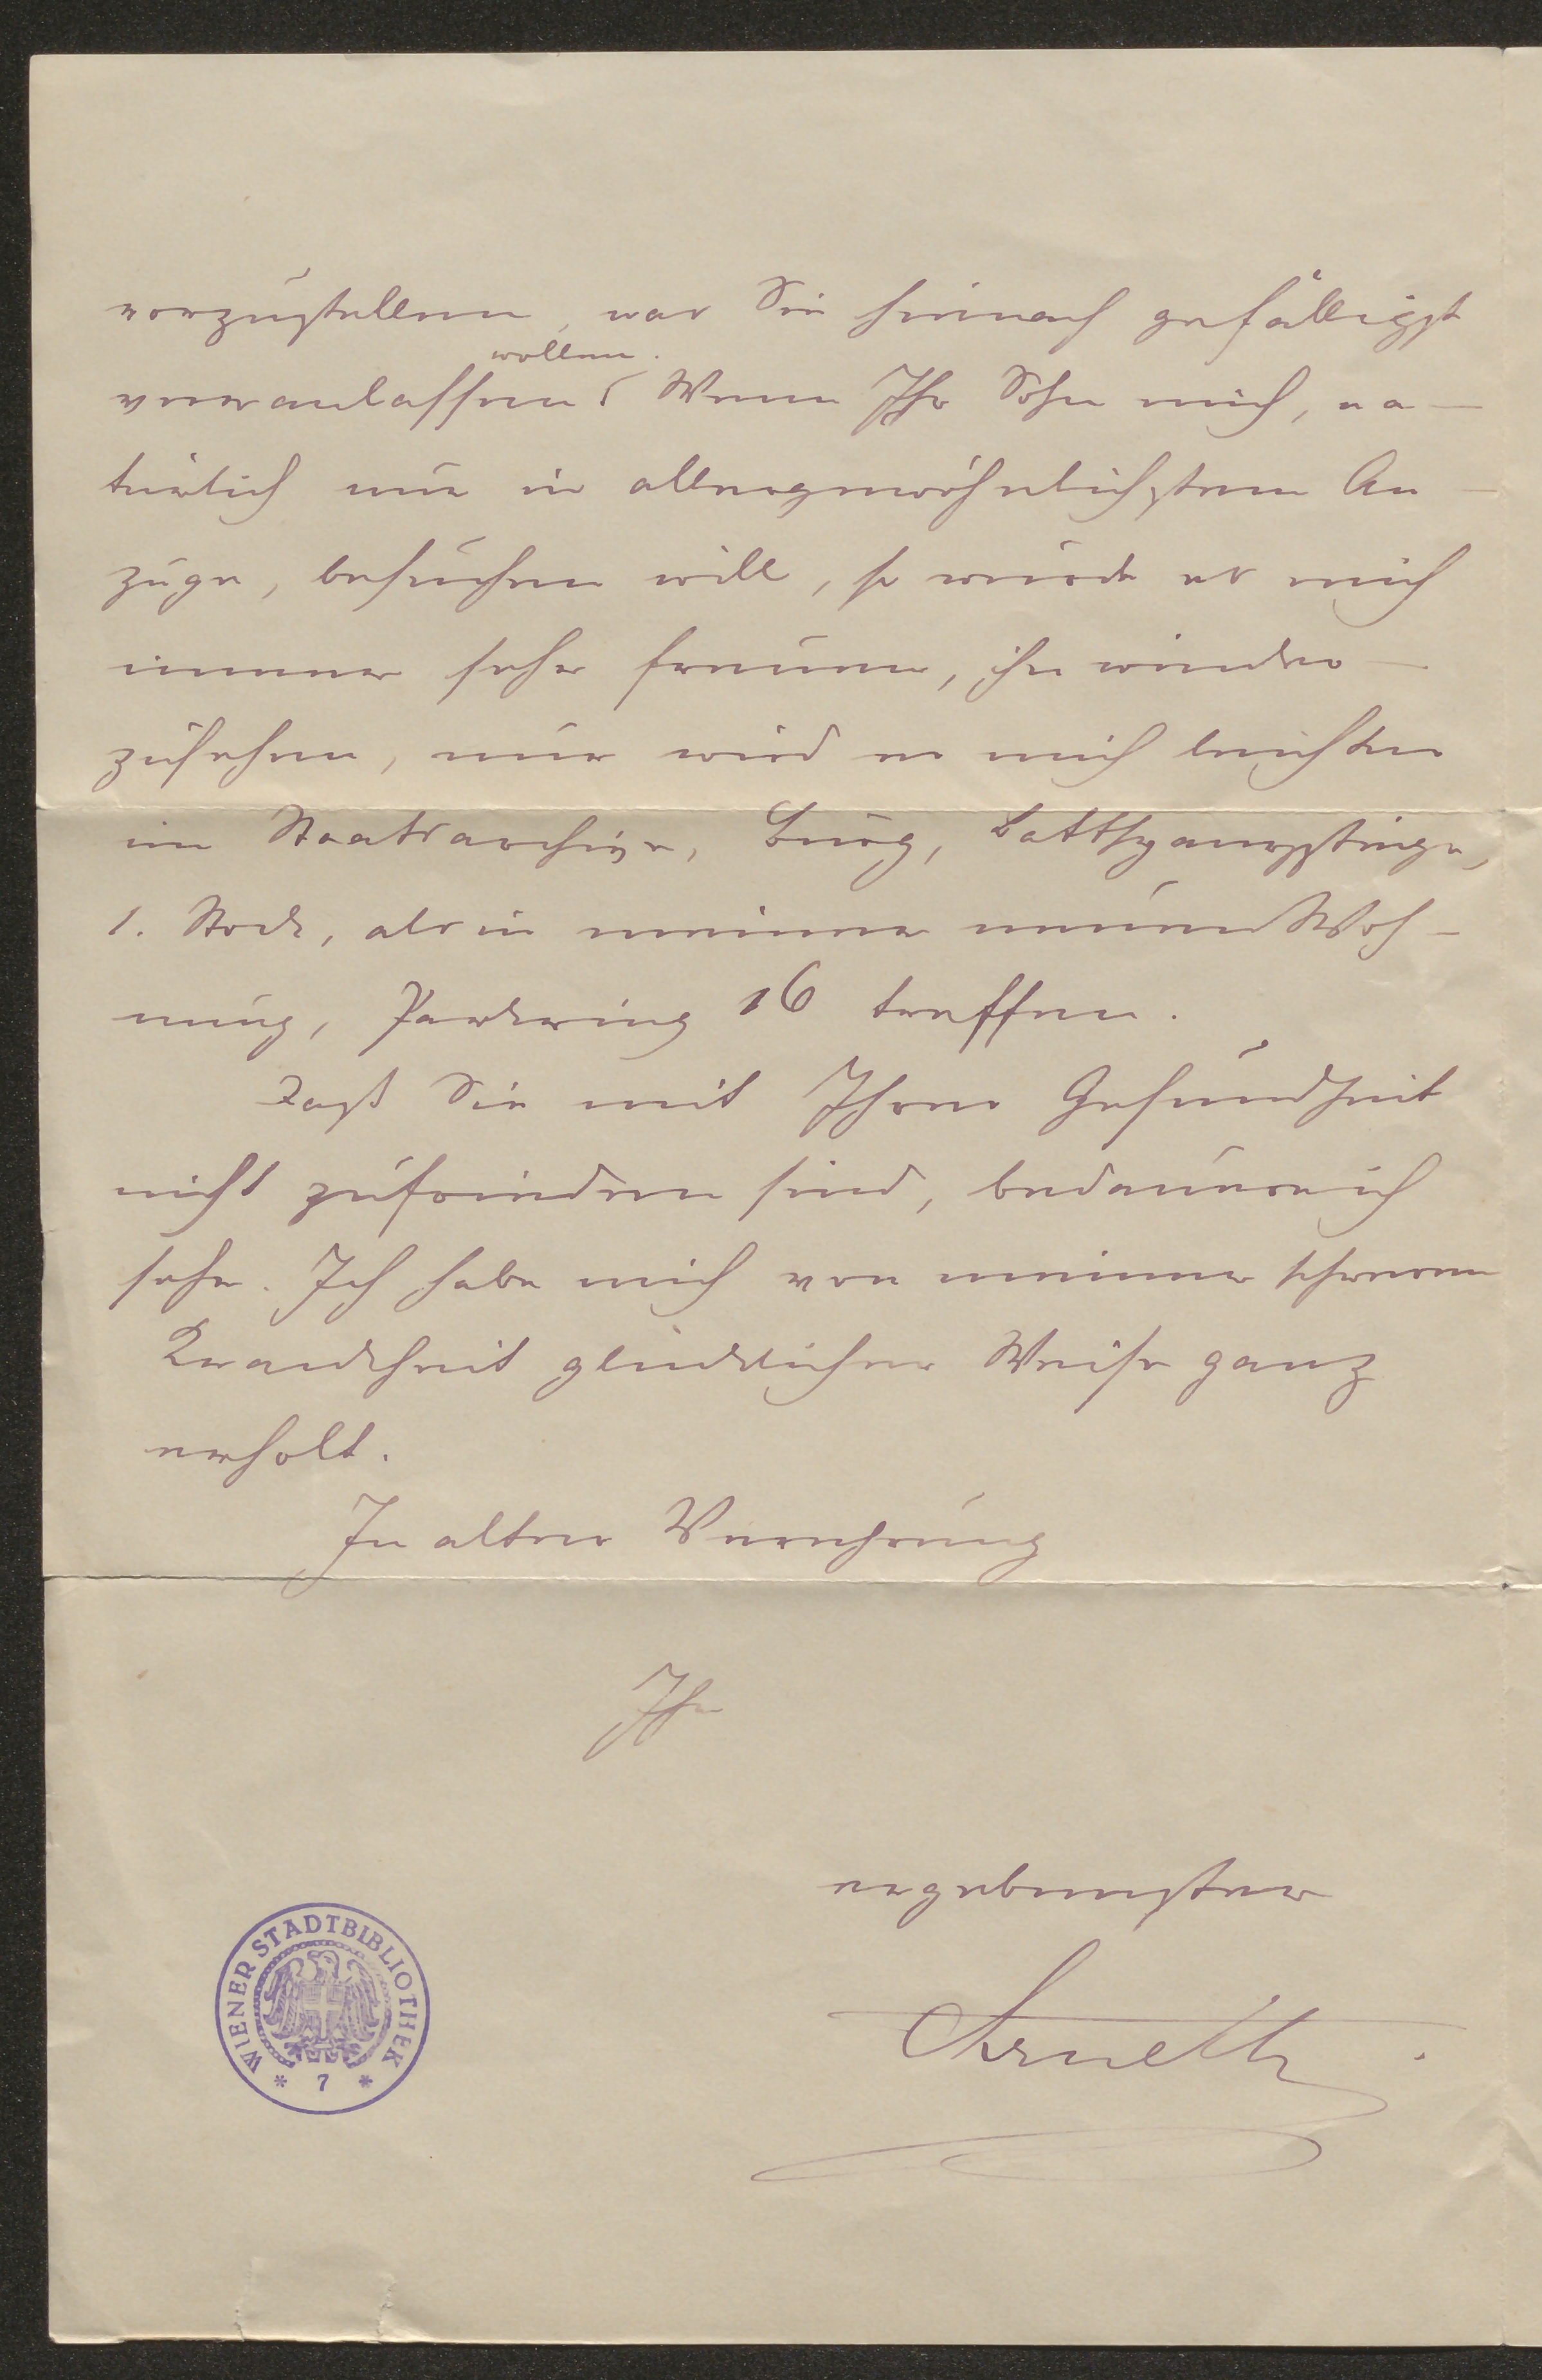 vorzustellen, was Sie hienach gefälligst
veranlassen wollen. Wenn Ihr Sohn mich, na-
türlich nur in allergewöhnlichstem An-
zuge, besuchen will, so würde es mich
immer sehr freuen, ihn wieder-
zusehen, nur wird er mich leichter
im Staatsarchive, Burg, Batthyanystiege,
1. Stock, als in meiner neuen Woh-
nung, Parkring 16 treffen.
Daß Sie mit Ihrer Gesundheit
nicht zufrieden sind, bedauere ich
sehr. Ich habe mich von meiner schweren
Krankheit glücklicher Weise ganz
erholt.
In alter Verehrung
Ihr
ergebenster
Arneth.
WIENER STADTBIBLIOTHEK
* 7 *